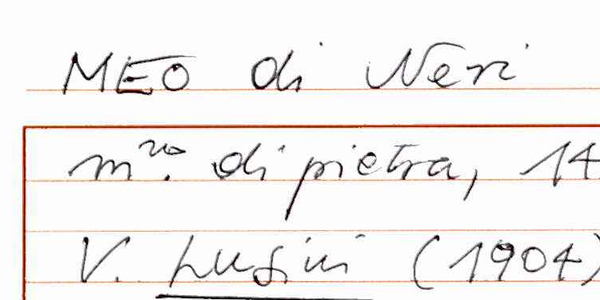 MEO di Neri
m.ro di pietra, 14
V. Lusini (1904)